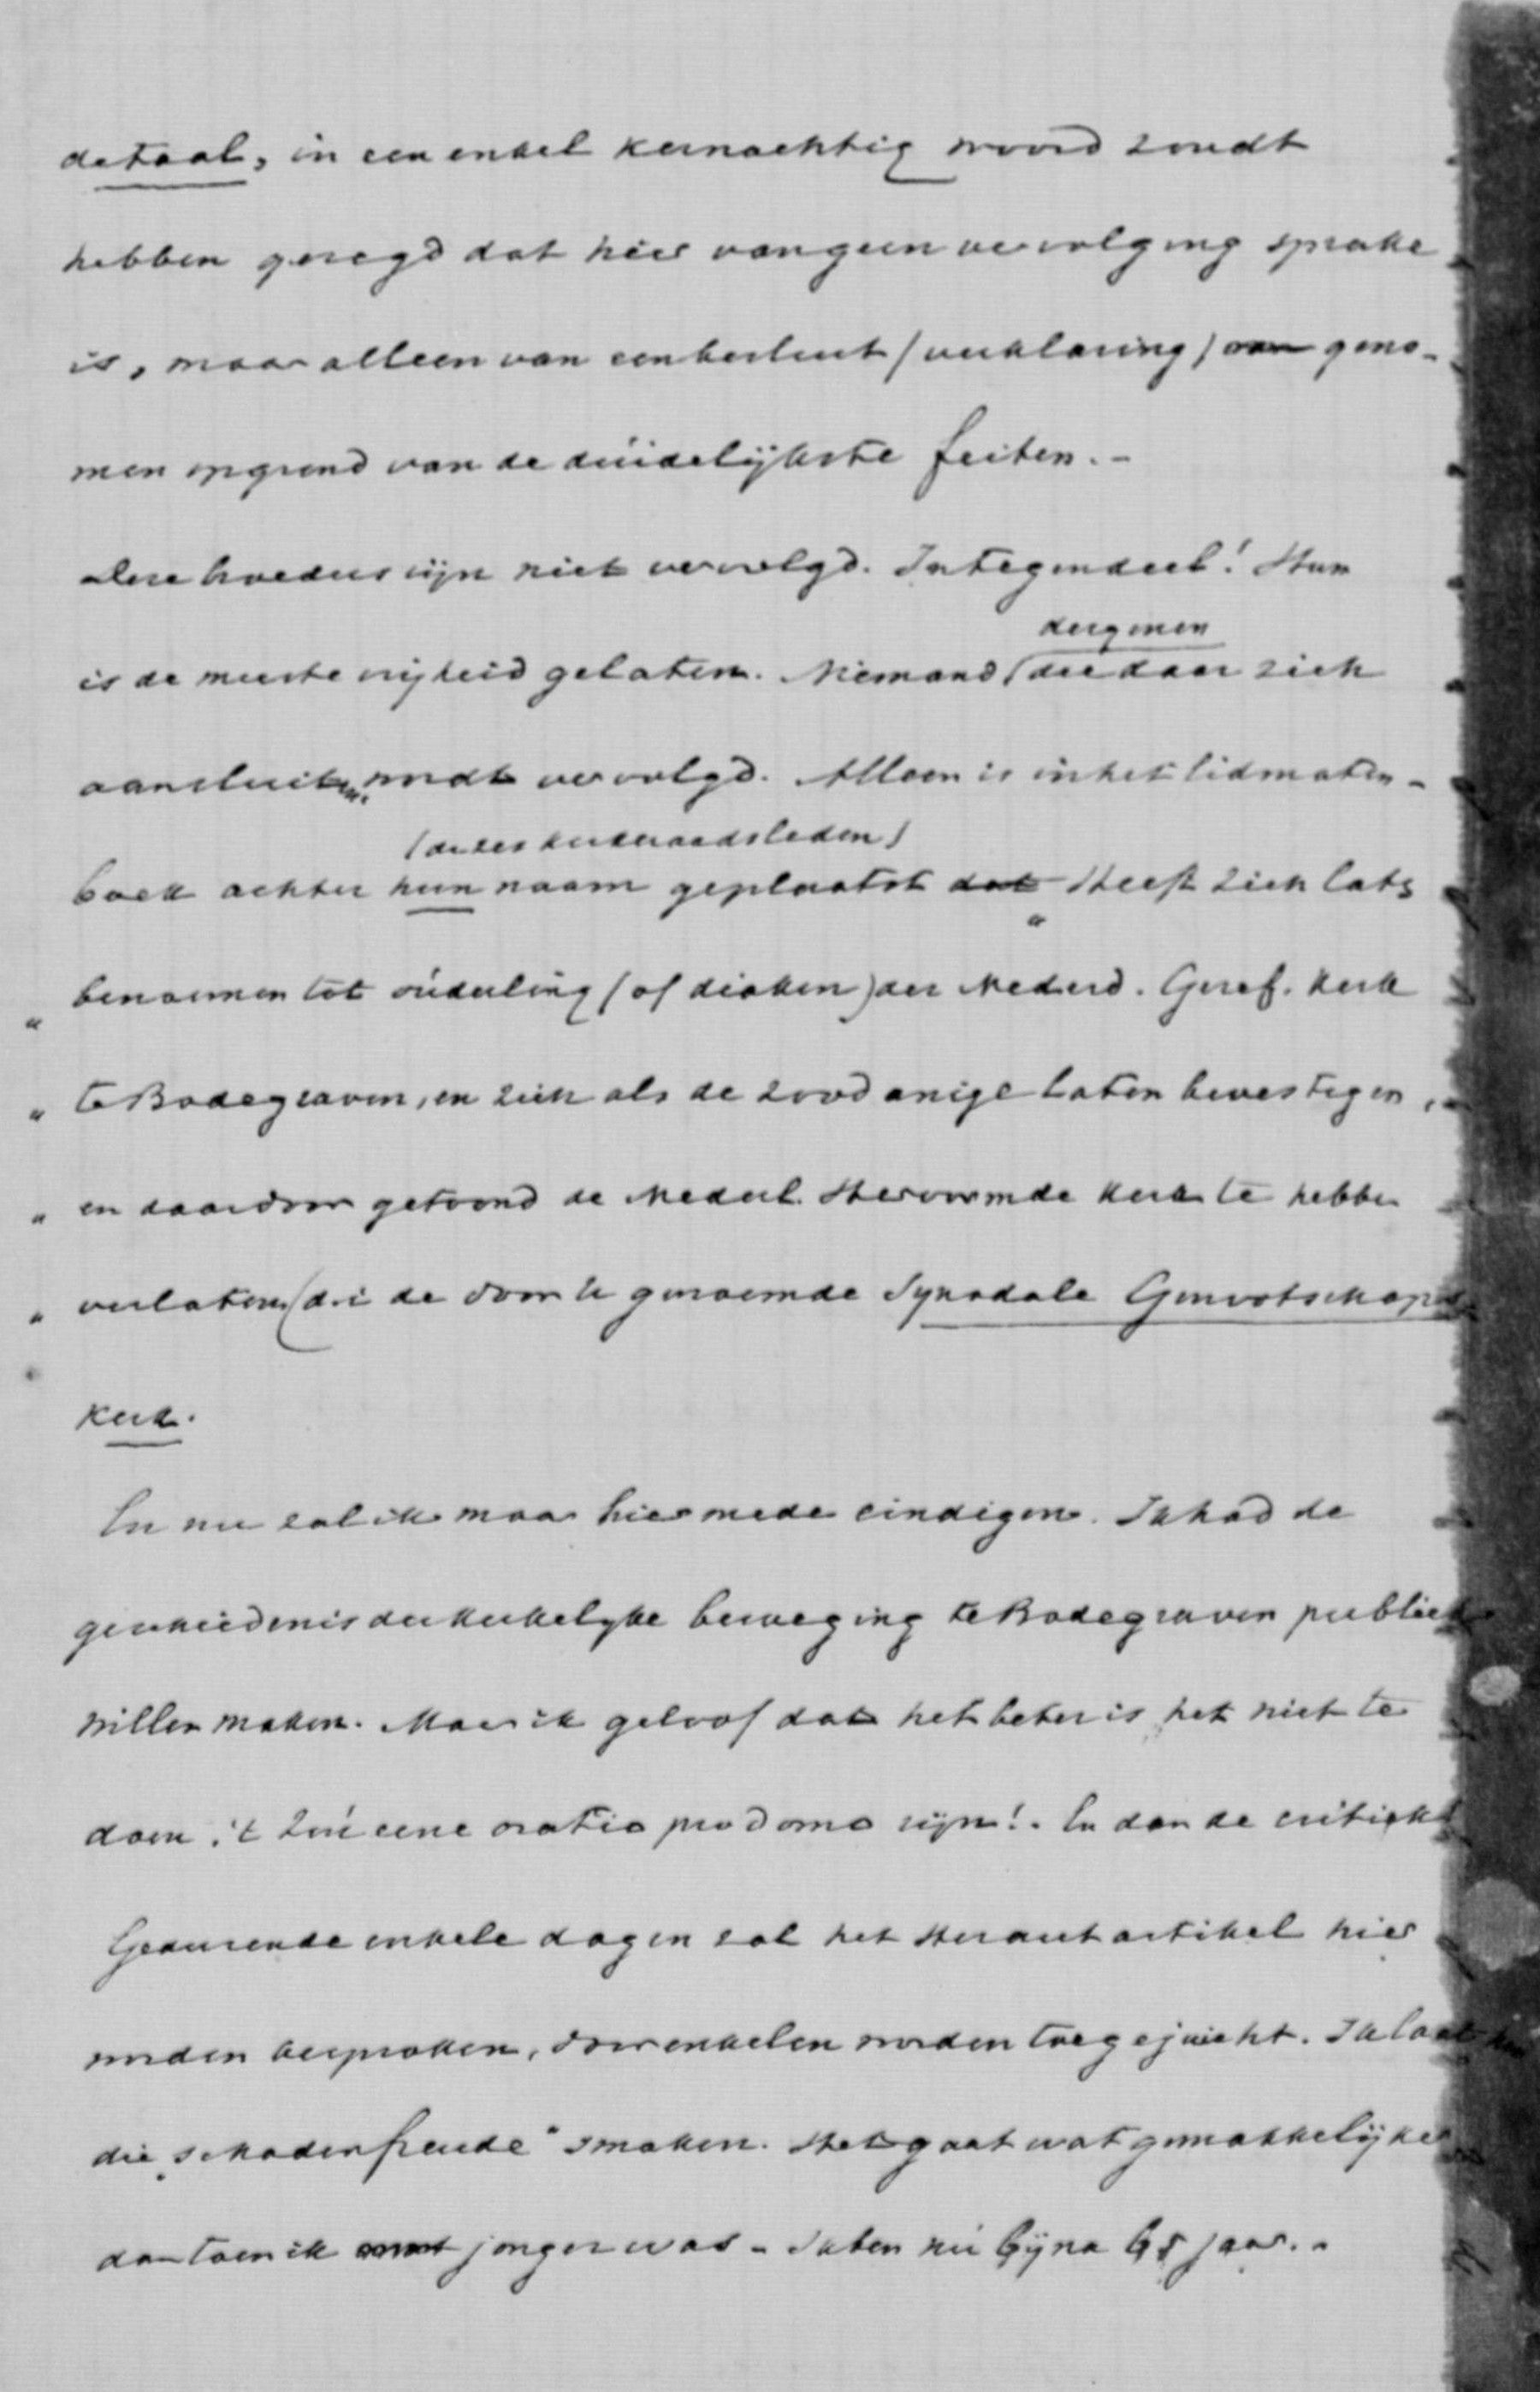 de taal, in een enkel kernachtig woord zoudt
hebben gezegd dat hier van geen vervolging sprake
is, maar alleen van een besluit (verklaring) van geno-
men op grond van de duidelijkste feiten. -
Deze broeders zijn niet vervolgd. Integendeel! Hun
is de meeste vrijheid gelaten. Niemand (die daar zich
dergenen
aansluiten, wordt vervolgd. Alleen is in het lidmaten-
(de zes kerkeraadsleden)
boek achter hun naam geplaatst dat „Heeft zich lats
„ benoemen tot ouderling (of diaken) der Nederd. Geref. Kerk
„ te Bodegraven, en zich als de zoodanige laten bevestigen,
„ en daardoor getoond de Nederl. Hervormde Kerk te hebben
„ verlaten (d.i de door U genoemde Synodale Genootschaps
Kerk.
En nu zal ik maar hiermede eindigen. Ik had de
geschiedenis der kerkelyke beweging te Bodegraven publiek
willen maken. Maar ik geloof dat het beter is het niet te
doen, 't Zou eene oratio pro domo zijn!. En dan de critiek!
Gedurende enkele dagen zal het Heraut artikel hier
worden besproken, door enkelen worden toegejuicht. Ik laat hun
die „schadenfreude" smaken. Het gaat wat gemakkelijker
dan toen ik jonger was - Ik ben nu bijna 65 jaar. -